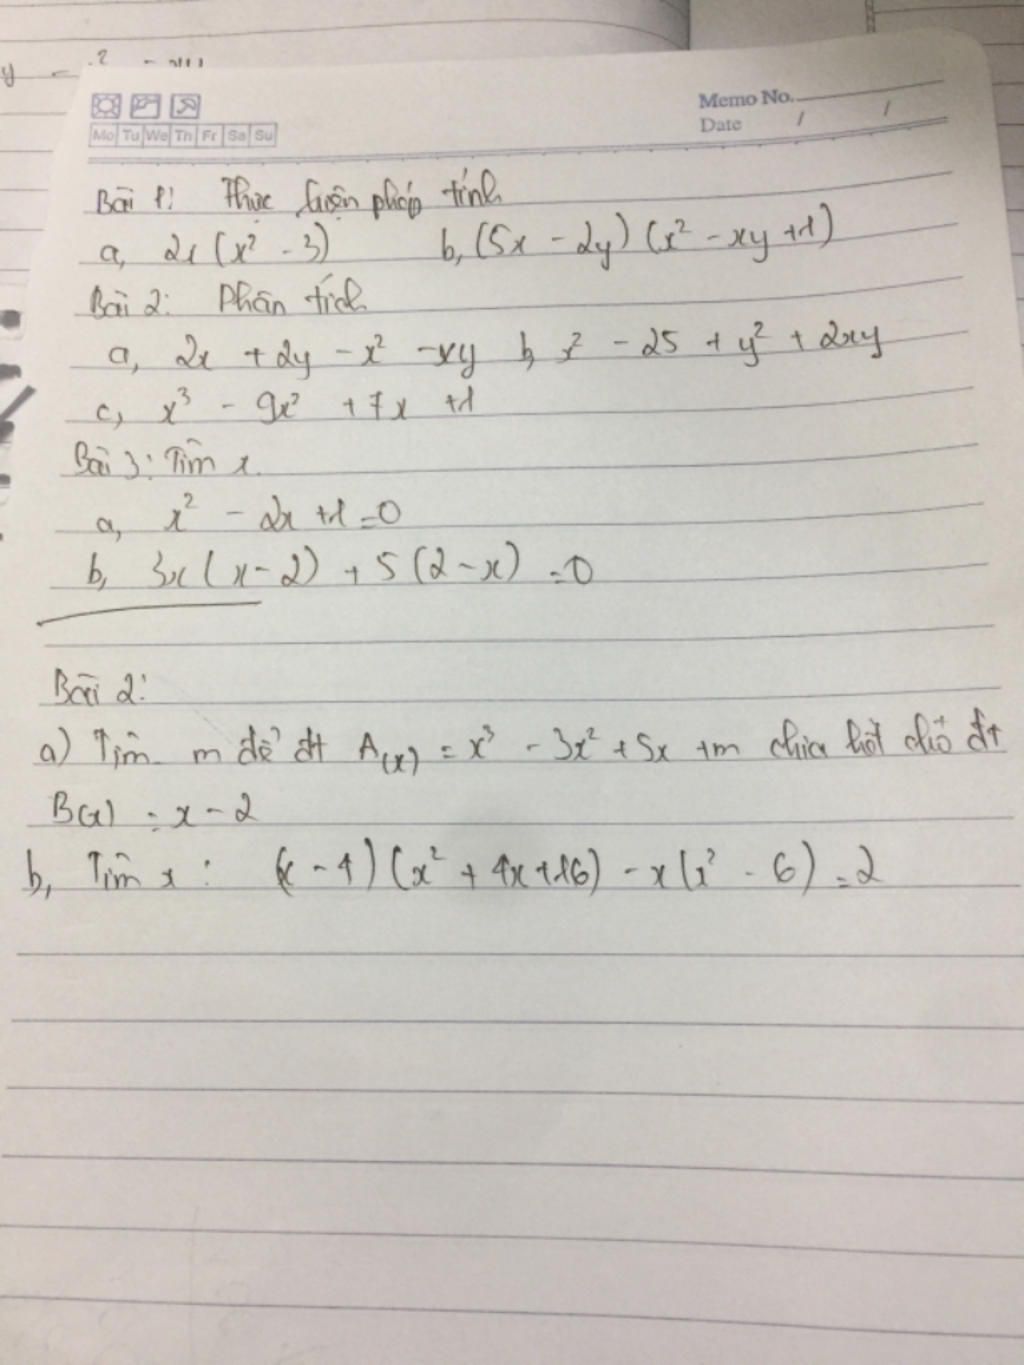 Memo No.
Date / /
Mo Tu We Th Fr Sa Su
Bài 1: Thực hiện phép tính
a, 2x (x² - 3) b, (5x - 2y) (x² - xy +1)
Bài 2: Phân tích
a, 2x + 2y - x² - xy b, x² - 25 + y² + 2xy
c, x³ - 9x² + 7x + 1
Bài 3: Tìm x.
a, x² - 2x + 1 = 0
b, 3x (x - 2) + 5 (2 - x) = 0
Bài 2:
a) Tìm m để đt A(x) = x³ - 3x² + 5x + m chia hết cho đt
B(x) = x - 2
b, Tìm x : (x - 4) (x² + 4x + 16) - x (x² - 6) = 2